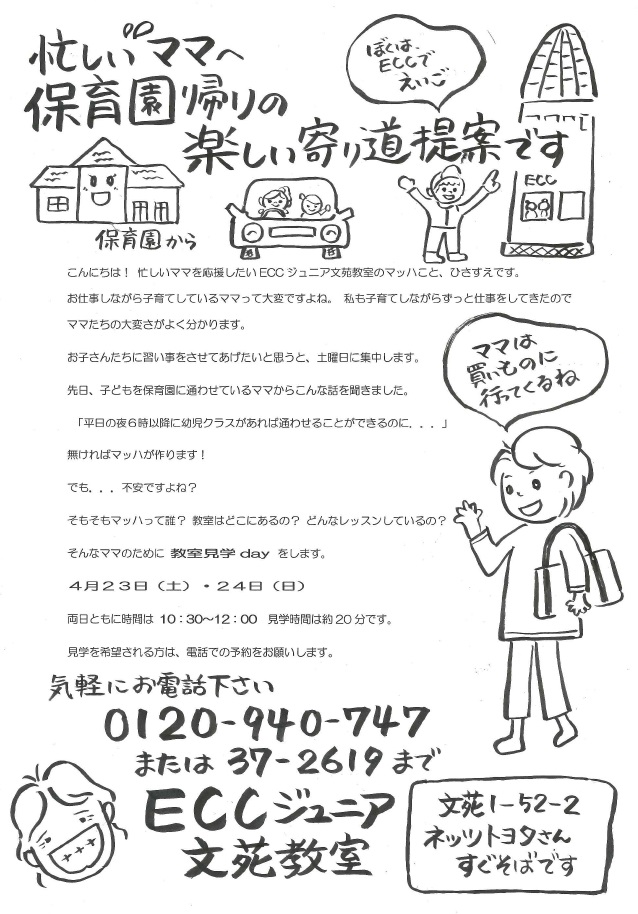 忙しいママへ
保育園帰りの
楽しい寄り道提案です
ぼくは、
ECCで
えいご
ECC
保育園から
こんにちは！ 忙しいママを応援したいECCジュニア文苑教室のマッハこと、ひさすえです。
お仕事しながら子育てしているママって大変ですよね。 私も子育てしながらずっと仕事をしてきたので
ママたちの大変さがよく分かります。
お子さんたちに習い事をさせてあげたいと思うと、土曜日に集中します。
先日、子どもを保育園に通わせているママからこんな話を聞きました。
「平日の夜６時以降に幼児クラスがあれば通わせることができるのに．．．」
無ければマッハが作ります！
でも．．．不安ですよね？
そもそもマッハって誰？ 教室はどこにあるの？ どんなレッスンしているの？
そんなママのために 教室見学day をします。
４月２３日（土）・２４日（日）
両日ともに時間は 10：30～12：00 見学時間は約20分です。
見学を希望される方は、電話での予約をお願いします。
ママは
買いものに
行ってくるね
気軽にお電話下さい
0120-940-747
または 37-2619 まで
ECCジュニア
文苑教室
文苑1-52-2
ネッツトヨタさん
すぐそばです